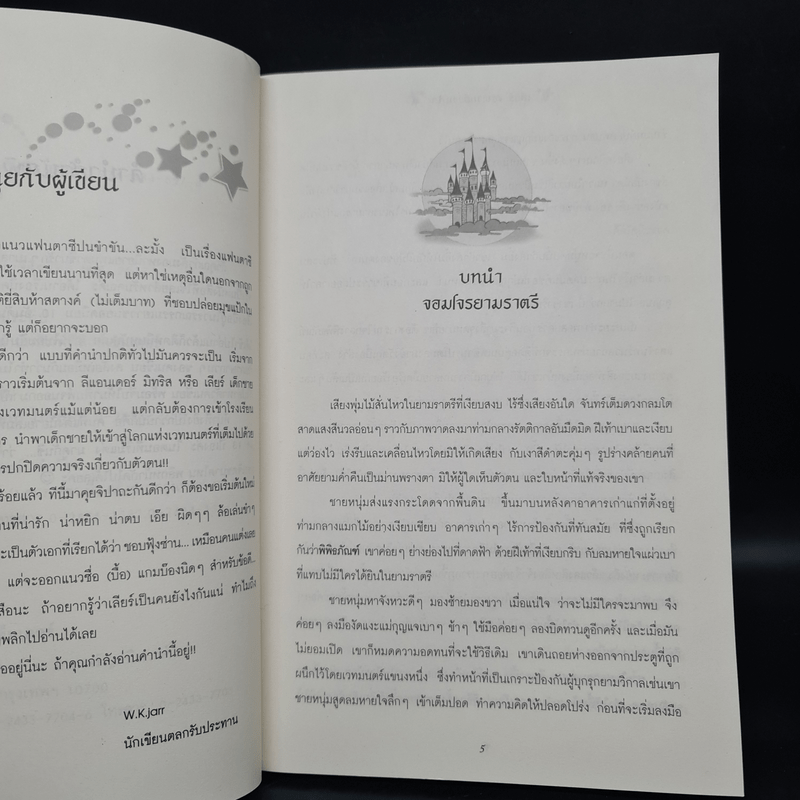 ุยกับผู้เขียน
แนวแฟนตาซีปนขำขัน...ละมั้ง เป็นเรื่องแฟนตาซี
ใช้เวลาเขียนนานที่สุด แต่หาใช่เหตุอื่นใดนอกจากถูก
ติยี่สิบห้าสตางค์ (ไม่เต็มบาท) ที่ชอบปล่อยมุขแป้กใน
กรู้ แต่ก็อยากจะบอก
ดีกว่า แบบที่คำนำปกติทั่วไปมันควรจะเป็น เริ่มจาก
ราวเริ่มต้นจาก ลีแอนเดอร์ มิทริส หรือ เลียร์ เด็กชาย
งเวทมนตร์แม้แต่น้อย แต่กลับต้องการเข้าโรงเรียน
ร นำพาเด็กชายให้เข้าสู่โลกแห่งเวทมนตร์ที่เต็มไปด้วย
รปกปิดความจริงเกี่ยวกับตัวตน!!
ร้อยแล้ว ทีนี้มาคุยจิปาถะกันดีกว่า ก็ต้องขอเริ่มต้นใหม่
านที่น่ารัก น่าหยิก น่าตบ เอ๊ย ผิดๆๆ ล้อเล่นขำๆ
ะเป็นตัวเอกที่เรียกได้ว่า ชอบฟุ้งซ่าน... เหมือนคนแต่งเลย
แต่จะออกแนวซื่อ (บื้อ) แกมบ๊องนิดๆ สำหรับข้อดี...
สือนะ ถ้าอยากรู้ว่าเลียร์เป็นคนยังไงกันแน่ ทำไมถึง
พลิกไปอ่านได้เลย
ออยู่นี่นะ ถ้าคุณกำลังอ่านคำนำนี้อยู่!!
W.K.jarr
นักเขียนตลกรับประทาน
บทนำ
จอมโจรยามราตรี
เสียงพุ่มไม้สั่นไหวในยามราตรีที่เงียบสงบ ไร้ซึ่งเสียงอันใด จันทร์เต็มดวงกลมโต
สาดแสงสีนวลอ่อนๆ ราวกับภาพวาดลงมาท่ามกลางรัตติกาลอันมืดมิด ฝีเท้าเบาและเงียบ
แต่ว่องไว เร่งรีบและเคลื่อนไหวโดยมิให้เกิดเสียง กับเงาสีดำตะคุ่มๆ รูปร่างคล้ายคนที่
อาศัยยามค่ำคืนเป็นม่านพรางตา มิให้ผู้ใดเห็นตัวตน และใบหน้าที่แท้จริงของเขา
ชายหนุ่มส่งแรงกระโดดจากพื้นดิน ขึ้นมาบนหลังคาอาคารเก่าแก่ที่ตั้งอยู่
ท่ามกลางแมกไม้อย่างเงียบเชียบ อาคารเก่าๆ ไร้การป้องกันที่ทันสมัย ที่ซึ่งถูกเรียก
กันว่าพิพิธภัณฑ์ เขาค่อยๆ ย่างย่องไปที่ดาดฟ้า ด้วยฝีเท้าที่เงียบกริบ กับลมหายใจแผ่วเบา
ที่แทบไม่มีใครได้ยินในยามราตรี
ชายหนุ่มหาจังหวะดีๆ มองซ้ายมองขวา เมื่อแน่ใจ ว่าจะไม่มีใครจะมาพบ จึง
ค่อยๆ ลงมืองัดแงะแม่กุญแจเบาๆ ช้าๆ ใช้มือค่อยๆ ลองบิดทวนดูอีกครั้ง และเมื่อมัน
ไม่ยอมเปิด เขาก็หมดความอดทนที่จะใช้วิธีเดิม เขาเดินถอยห่างออกจากประตูที่ถูก
ผนึกไว้โดยเวทมนตร์แขนงหนึ่ง ซึ่งทำหน้าที่เป็นเกราะป้องกันผู้บุกรุกยามวิกาลเช่นเขา
ชายหนุ่มสูดลมหายใจลึกๆ เข้าเต็มปอด ทำความคิดให้ปลอดโปร่ง ก่อนที่จะเริ่มลงมือ
5